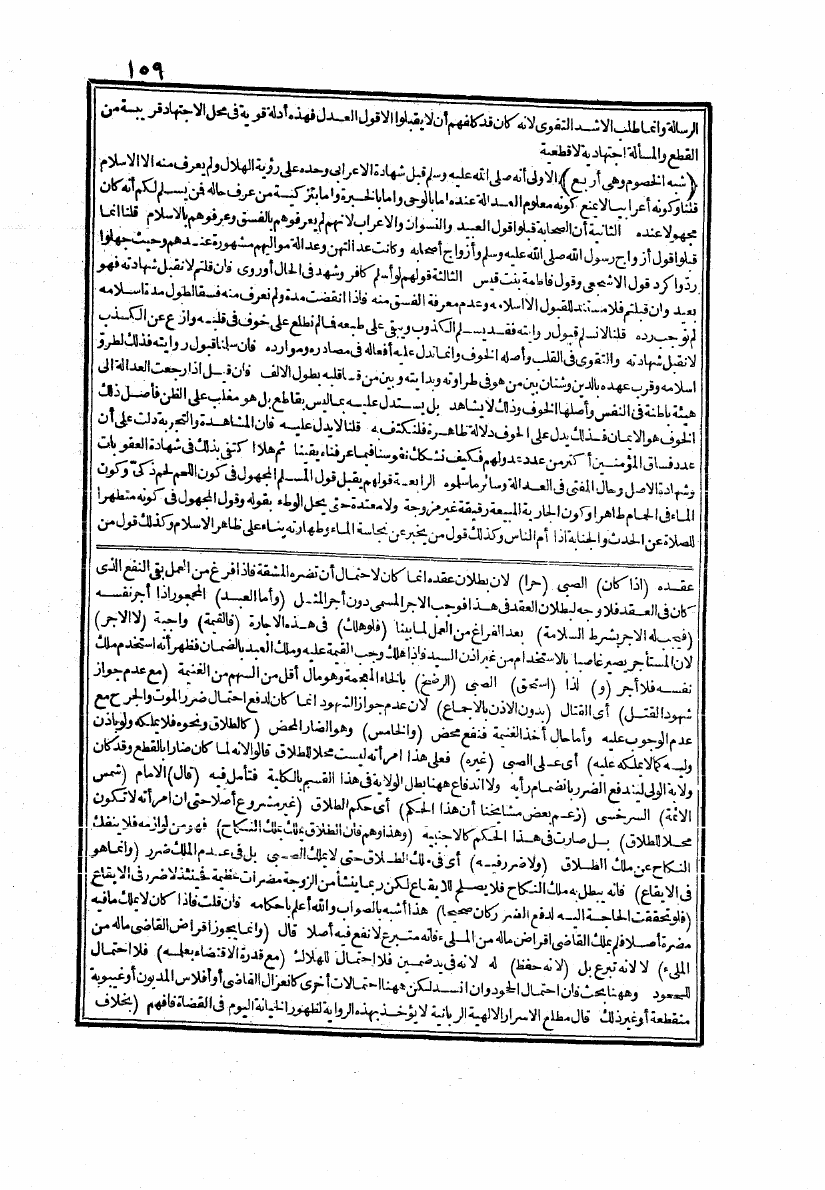 ١٥٩
الرسالة وانما طلب الاشد التقوى لانه كان قد كلفهم أن لا يقبلوا الا قول العدل فهذه أدلة قوية فى محل الاجتهاد قريبة من
القطع والمسألة اجتهادية لا قطعية
﴿شبه الخصوم وهى أربع﴾ الاولى أنه صلى الله عليه وسلم قبل شهادة الاعرابى وحده على رؤية الهلال ولم يعرف منه الا الاسلام
قلنا وكونه أعرابيا لا يمنع كونه معلوم العدالة عنده اما بالوحى واما بالخبرة واما بتزكية من عرف حاله فمن يسلم لكم أنه كان
مجهولا عنده الثانية أن الصحابة قبلوا قول العبيد والنسوان والاعراب لانهم لم يعرفوهم بالفسق وعرفوهم بالاسلام قلنا انما
قبلوا قول أزواج رسول الله صلى الله عليه وسلم وأزواج أصحابه وكانت عدالتهن وعدالة مواليهم مشهورة عندهم وحيث جهلوا
ردوا كرد قول الاشجعى وقول فاطمة بنت قيس الثالثة قولهم لو أسلم كافر وشهد فى الحال أو روى فان قلتم لا نقبل شهادته فهو
بعيد وان قبلتم فلا مستند للقبول الا اسلامه وعدم معرفة الفسق منه فاذا انقضت مدة ولم نعرف منه فسقا لطول مدة اسلامه
لم توجب رده قلنا لا نسلم قبول روايته فقد يسلم الكذوب ويبقى على طبعه فما لم نطلع على خوف فى قلبه وازع عن الكذب
لا نقبل شهادته والتقوى فى القلب وأصله الخوف وانما تدل عليه أفعاله فى مصادره وموارده فان سلمنا قبول روايته فذلك لطرو
اسلامه وقرب عهده بالدين وشتان بين من هو فى طراوته وبدايته وبين من قسا قلبه بطول الالف فان قيل اذا رجعت العدالة الى
هيئة باطنة فى النفس وأصلها الخوف وذلك لا يشاهد بل يستدل عليه بما ليس بقاطع بل هو مغلب على الظن فأصل ذلك
الخوف هو الايمان فذلك يدل على الخوف دلالة ظاهرة فلنكتف به قلنا لا يدل عليه فان المشاهدة والتجربة دلت على أن
عدد فساق المؤمنين أكثر من عدد عدولهم فكيف نشكك نفوسنا فيما عرفناه يقينا ثم هلا اكتفى بذلك فى شهادة العقوبات
وشهادة الاصل وحال المفتى فى العدالة وسائر ما سلموه الرابعة قولهم يقبل قول المسلم المجهول فى كون اللحم لحم ذكى وكون
الماء فى الحمام طاهرا وكون الجارية المبيعة رقيقة غير مزوجة ولا معتدة حتى يحل الوطء بقوله وقول المجهول فى كونه متطهرا
للصلاة عن الحدث والجنابة اذا أم الناس وكذلك قول من يخبر عن نجاسة الماء وطهارته بناء على ظاهر الاسلام وكذلك قول من
عقده (اذا كان) الصبى (حرا) لان بطلان عقده انما كان لاحتمال أن تضره المشقة فاذا فرغ من العمل بقى النفع الذى
كان فى العقد فلا وجه لبطلان العقد فى هذا فوجب الاجر المسمى دون أجر المثل (وأما العبد) المحجور اذا أجر نفسه
(فيجب له الاجر بشرط السلامة) بعد الفراغ من العمل لما بينا (فلو هلك) فى هذه الاجارة (فالقيمة) واجبة (لا الاجر)
لان المستأجر يصير غاصبا بالاستخدام من غير اذن السيد فاذا هلك وجب القيمة عليه وملك العبد بالضمان فظهر أنه استخدم ملك
نفسه فلا أجر (و) لذا (استحق) الصبى (الرضخ) بالخاء المعجمة وهو مال أقل من السهم من الغنيمة (مع عدم جواز
شهود القتل) أى القتال (بدون الاذن بالاجماع) لان عدم جواز الشهود انما كان لدفع احتمال ضرر الموت والجرح مع
عدم الوجوب عليه وأما حال أخذ الغنيمة فنفع محض (والخامس) وهو الضار المحض (كالطلاق ونحوه فلا يملكه ولو باذن
وليه كما لا يملكه عليه) أى على الصبى (غيره) فعلى هذا امرأته ليست محلا للطلاق قالوا لانه لما كان ضارا بالقطع وقد كان
ولاية الولى ليندفع الضرر بانضمام رأيه ولا اندفاع ههنا بطل الولاية فى هذا القسم بالكلية فتأمل فيه (قال) الامام (شمس
الائمة) السرخسى (زعم بعض مشايخنا أن هذا الحكم) أى حكم الطلاق (غير مشروع أصلا حتى ان امرأته لا تكون
محلا للطلاق) بل صارت فى هذا الحكم كالاجنبية (وهذا وهم فان الطلاق يملك بملك النكاح) فهو من لوازمه فلا ينفك
النكاح عن ملك الطلاق (ولا ضرر فيه) أى فى ملك الطلاق حتى لا يملك الصبى بل فى عدم الملك ضرر (وانما هو
فى الايقاع) فانه يبطل به ملك النكاح فلا يصلح للايقاع لكن ربما ينشأ من الزوجة مضرات عظيمة فحينئذ لا ضرر فى الايقاع
(فلو تحققت الحاجة اليه لدفع الضرر كان صحيحا) هذا أشبه بالصواب والله أعلم باحكامه فان قلت فاذا كان لا يملك ما فيه
مضرة أصلا فلم يملك القاضى اقراض ماله من الملىء فانه متبرع لا نفع فيه أصلا قال (وانما يجوز اقراض القاضى ماله من
الملىء) لا لانه تبرع بل (لانه حفظ) له لانه فى يد ضمين فلا احتمال للهلاك (مع قدرة الاقتضاء بعلمه) فلا احتمال
للجحود وههنا بحث فان احتمال الجحود وان انسد لكن ههنا احتمالات أخرى كانعزال القاضى أو افلاس المديون أو غيبوبة
منقطعة أو غير ذلك قال مطلع الاسرار الالهية الربانية لا يؤخذ بهذه الرواية لظهور الخيانة اليوم فى القضاة فافهم (بخلاف